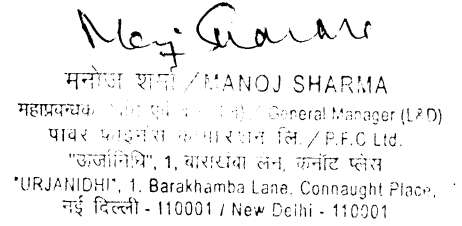 मनोज शर्मा / MANOJ SHARMA
महाप्रबन्धक / General Manager (L&D)
पावर फाइनेंस कारपोरेशन लि. / P.F.C Ltd.
"ऊर्जानिधि", 1, बाराखंबा लेन, कनॉट प्लेस
"URJANIDHI", 1, Barakhamba Lane, Connaught Place,
नई दिल्ली - 110001 / New Delhi - 110001